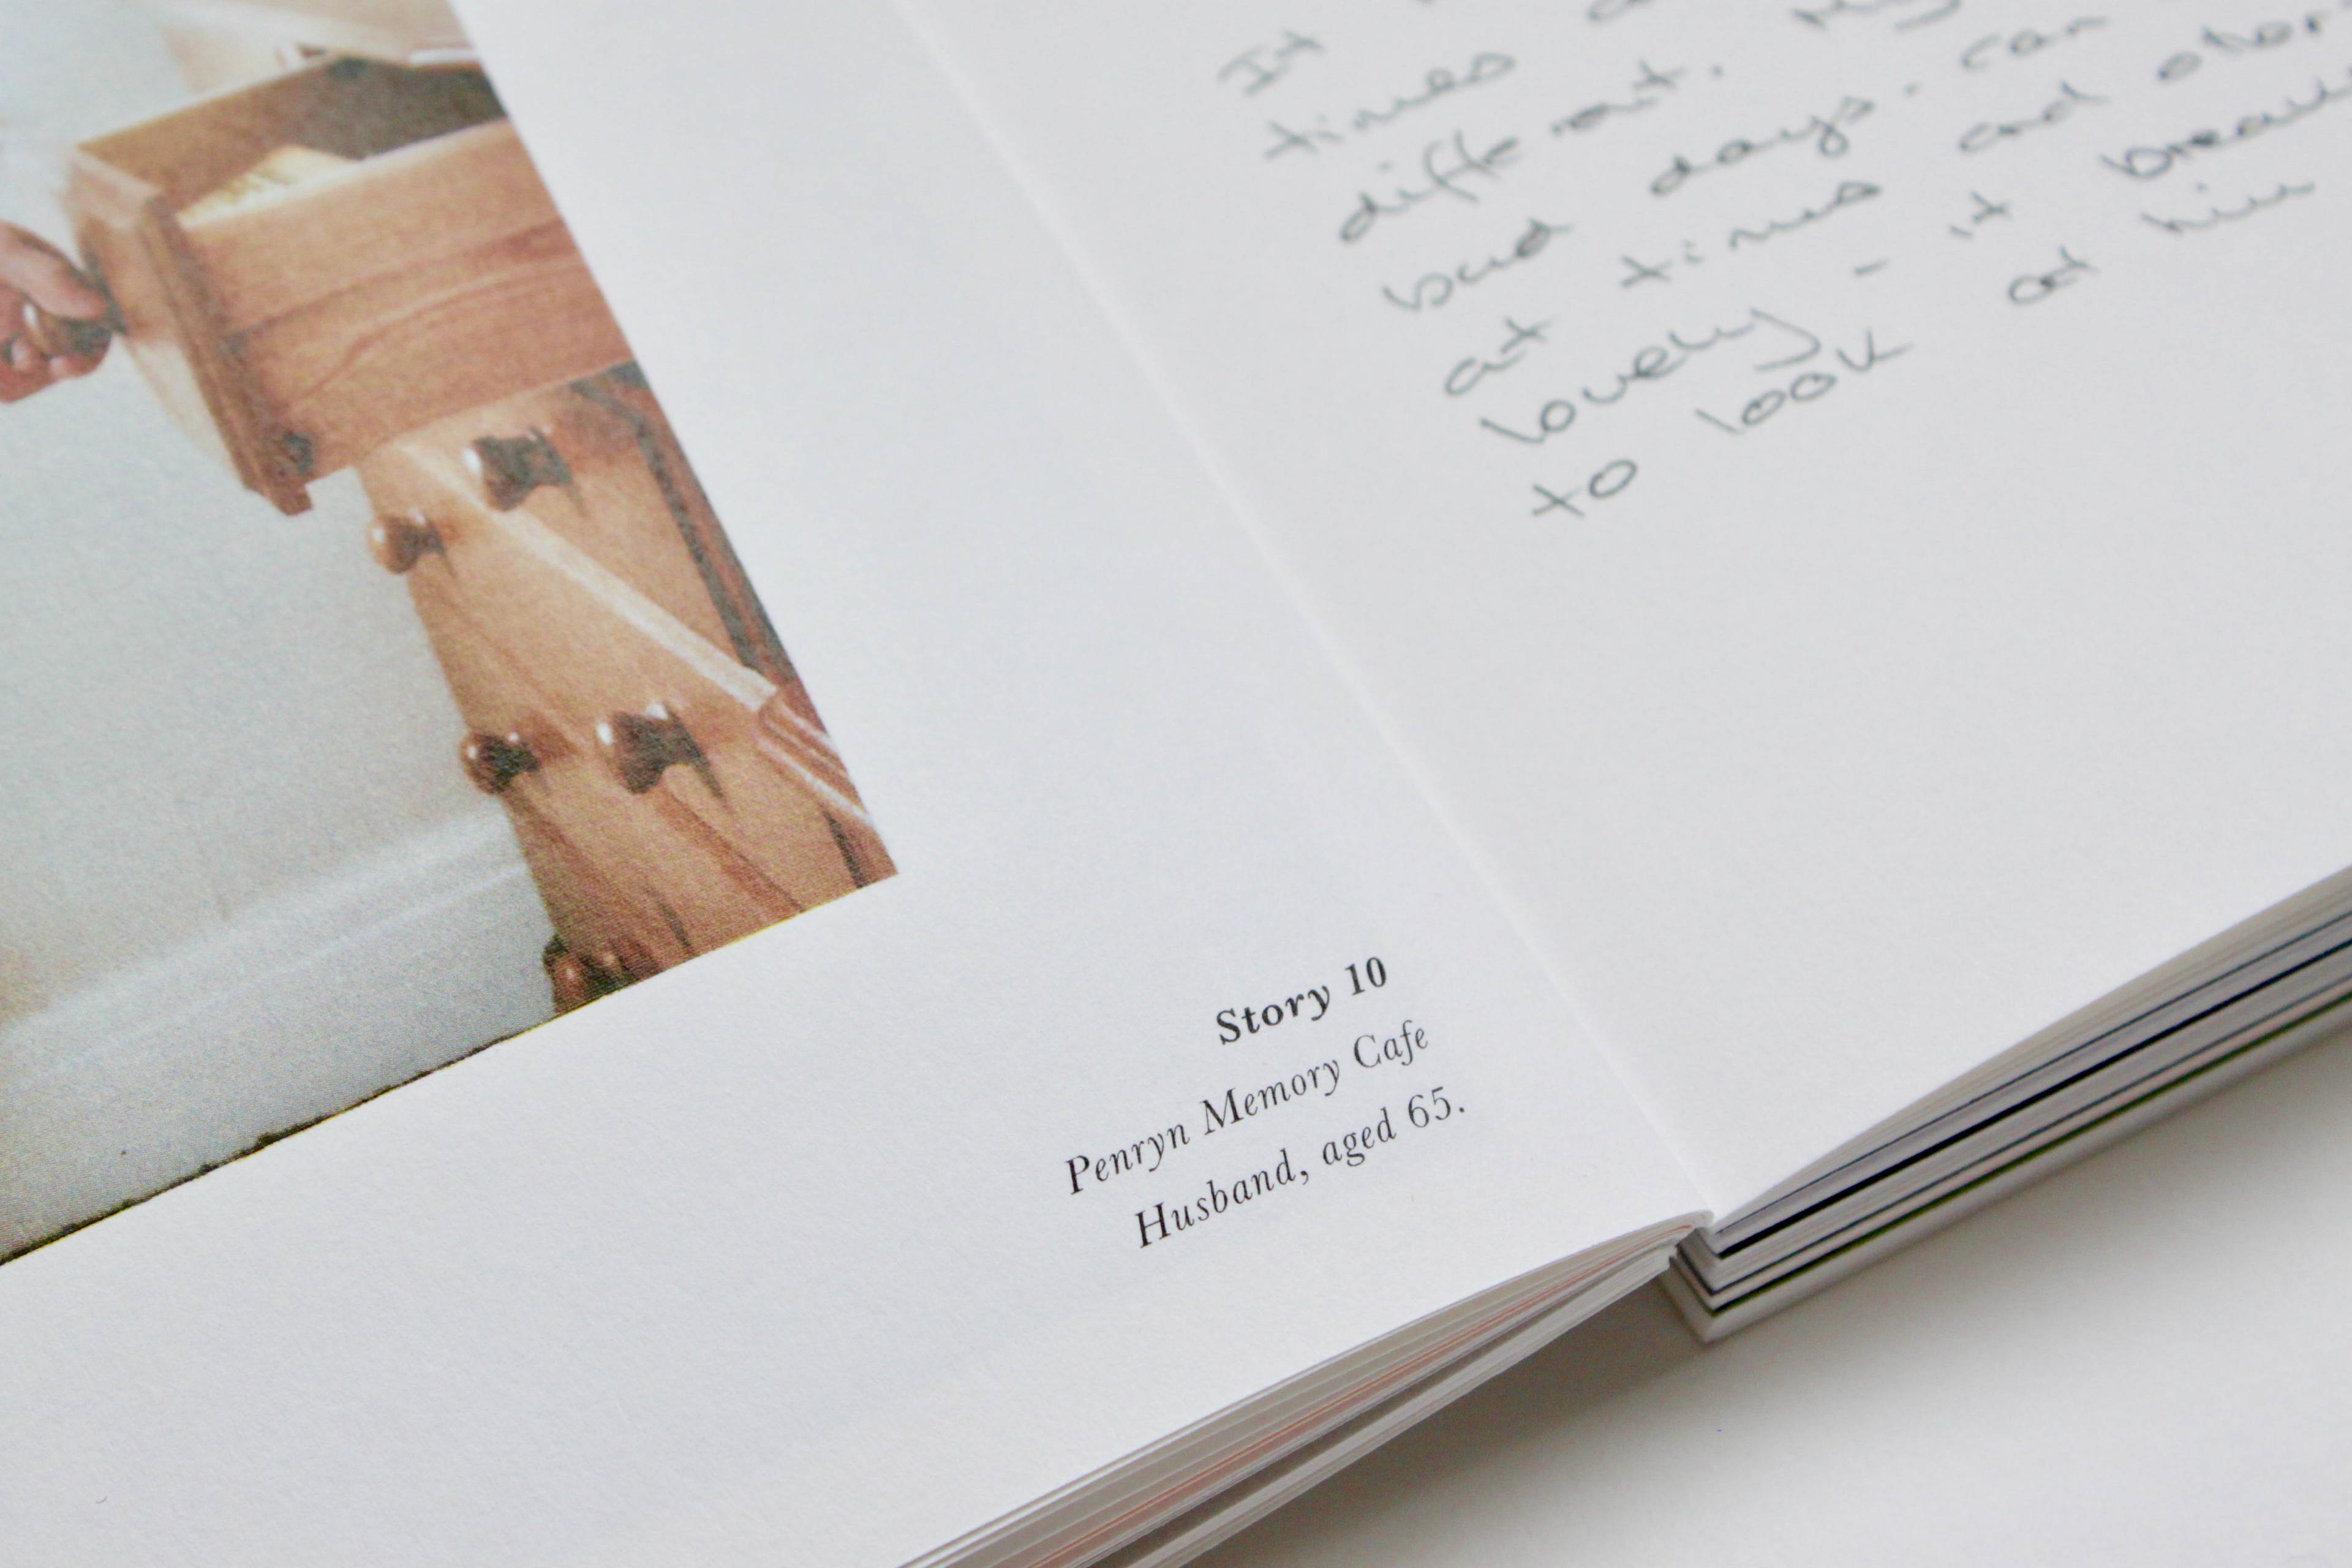 Story 10
Penryn Memory Cafe
Husband, aged 65.
It
times
different.
bad days. can
at times and other
lovely - it break
to look at him